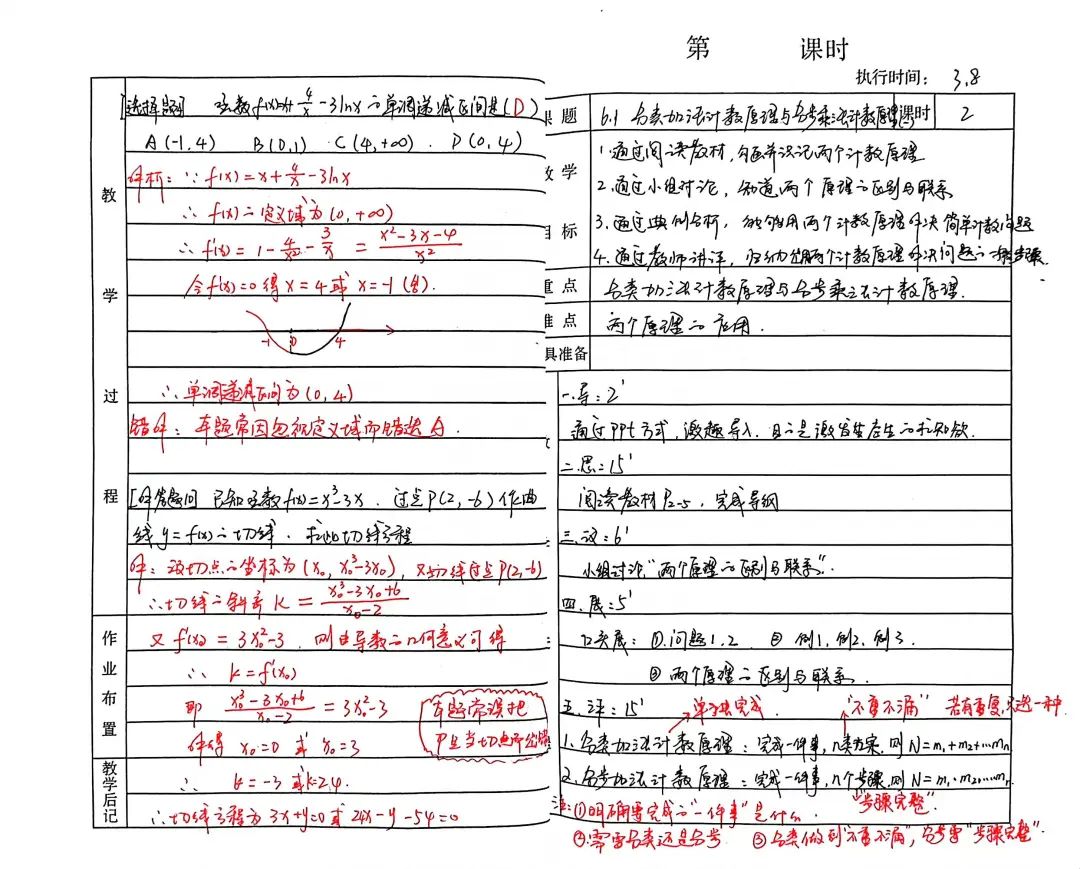 [选择题] 函数f(x)=x+4/x-3lnx的单调递减区间是(D)
A(-1,4) B(0,1) C(4,+∞). D(0,4)
解析:∵f(x)=x+4/x-3lnx
∴f(x)的定义域为(0,+∞)
∴f'(x)=1-4/x²-3/x=(x²-3x-4)/x²
令f'(x)=0得x=4或x=-1(舍).
-1 0 4
∴单调递减区间为(0,4)
错解:本题常因忽视定义域而错选A.
[解答题] 已知函数f(x)=x³-3x.过点P(2,-6)作曲
线y=f(x)的切线.求此切线方程
解:设切点的坐标为(x₀,x₀³-3x₀),又切线过点P(2,-6)
∴切线的斜率K=(x₀³-3x₀+6)/(x₀-2)
又f'(x₀)=3x₀²-3.则由导数的几何意义可得
∴k=f'(x₀)
即(x₀³-3x₀+6)/(x₀-2)=3x₀²-3
本题常误把
P点当切点而出错
解得x₀=0或x₀=3
∴k=-3或k=24.
∴切线方程为3x+y=0或24x-y-54=0
教
学
过
程
作
业
布
置
教学后记
第 课时
执行时间: 3.8
课题 6.1 分类加法计数原理与分步乘法计数原理 课时 2
教学
目标
1.通过阅读教材,勾画并识记两个计数原理
2.通过小组讨论,知道两个原理的区别与联系
3.通过典例分析,能够用两个计数原理解决简单计数问题
4.通过教师讲评,归纳出用两个计数原理解决问题的一般步骤.
重点 分类加法计数原理与分步乘法计数原理.
难点 两个原理的应用.
具准备
一.导:2'
通过PPT方式,激趣导入.目的是激发学生的求知欲.
二.思:15'
阅读教材P2-5,完成导纲
三.议:6'
小组讨论"两个原理的区别与联系".
四.展:5'
口头展:①.问题1,2 ②例1,例2,例3.
③两个原理的区别与联系.
五.评:15' 单独完成. "不重不漏" 若有重复,只选一种.
1.分类加法计数原理:完成一件事,n类方案.则N=m₁+m₂+...mₙ
2.分步加法计数原理:完成一件事,n个步骤.则N=m₁·m₂....mₙ
"步骤完整".
注:①明确要完成的"一件事"是什么.
②.需要分类还是分步 ③分类做到"不重不漏",分步要"步骤完整".